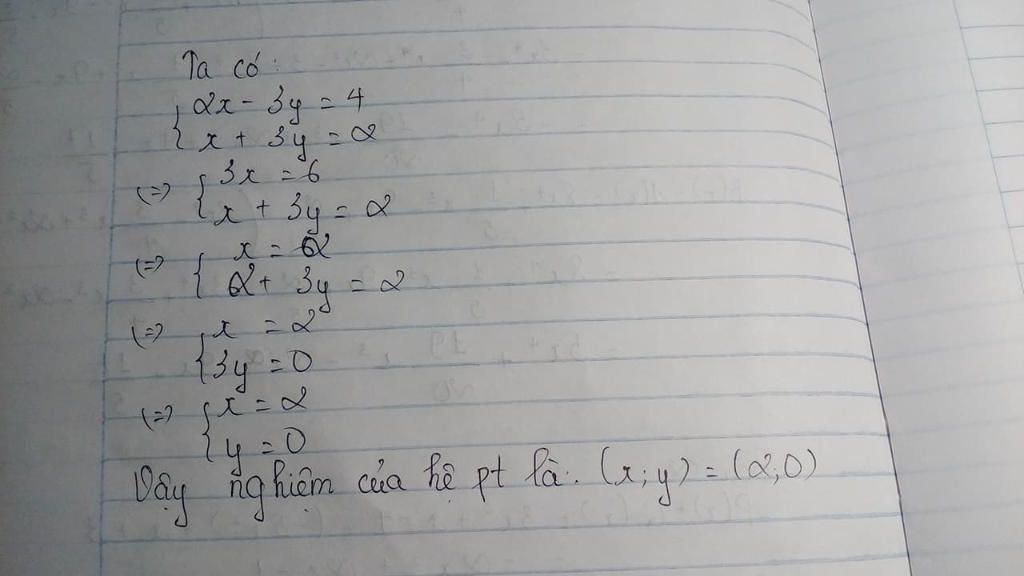 Ta có:
{ 2x - 3y = 4
x + 3y = 2
(=) { 3x = 6
x + 3y = 2
(=) { x = 2
2 + 3y = 2
(=) { x = 2
3y = 0
(=) { x = 2
y = 0
Vậy nghiệm của hệ pt là: (x; y) = (2; 0)